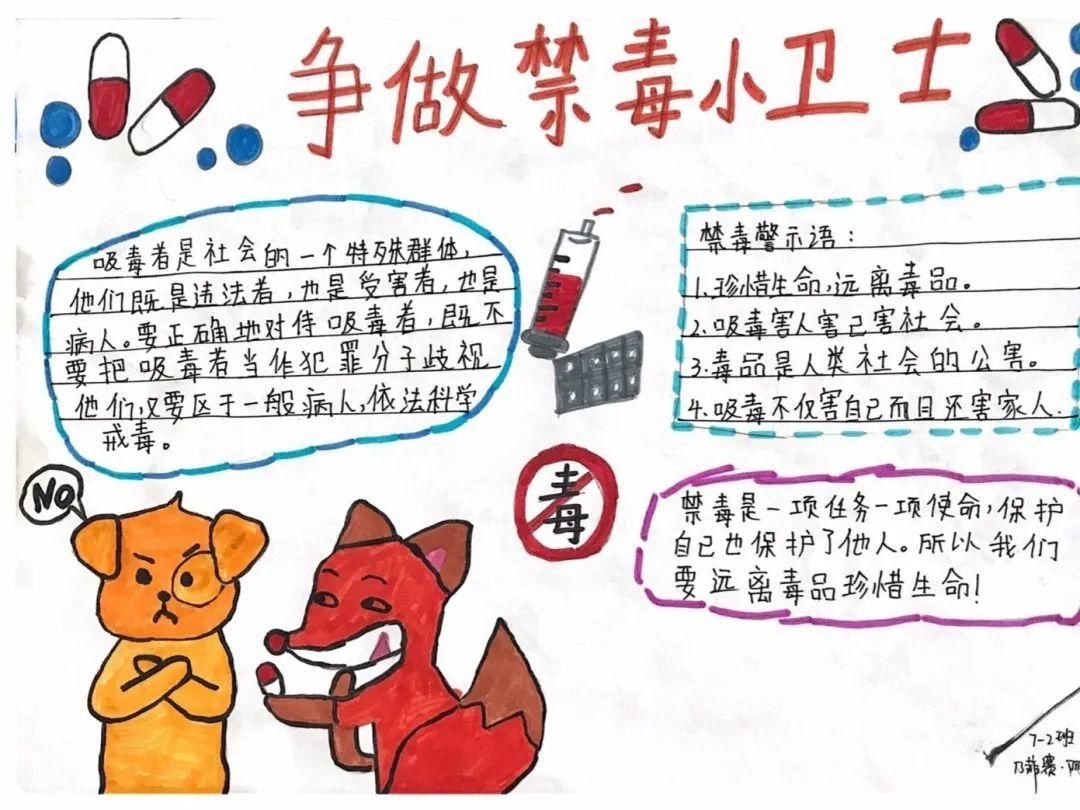 争做禁毒小卫士
吸毒者是社会的一个特殊群体,
他们既是违法者,也是受害者,也是
病人。要正确地对待吸毒者,既不
要把吸毒者当作犯罪分子歧视
他们,又要区于一般病人,依法科学
戒毒。
禁毒警示语:
1.珍惜生命,远离毒品。
2.吸毒害人害己害社会。
3.毒品是人类社会的公害。
4.吸毒不仅害自己而且还害家人.
NO
毒
禁毒是一项任务一项使命,保护
自己也保护了他人。所以我们
要远离毒品珍惜生命!
7-2班